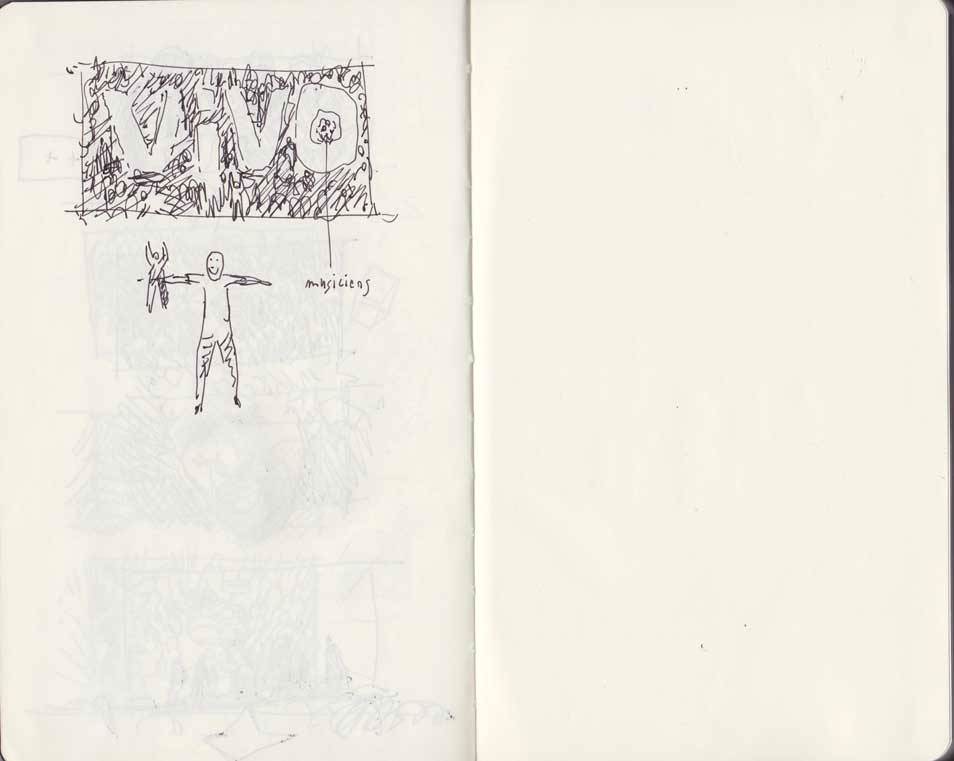 VIVO
musiciens